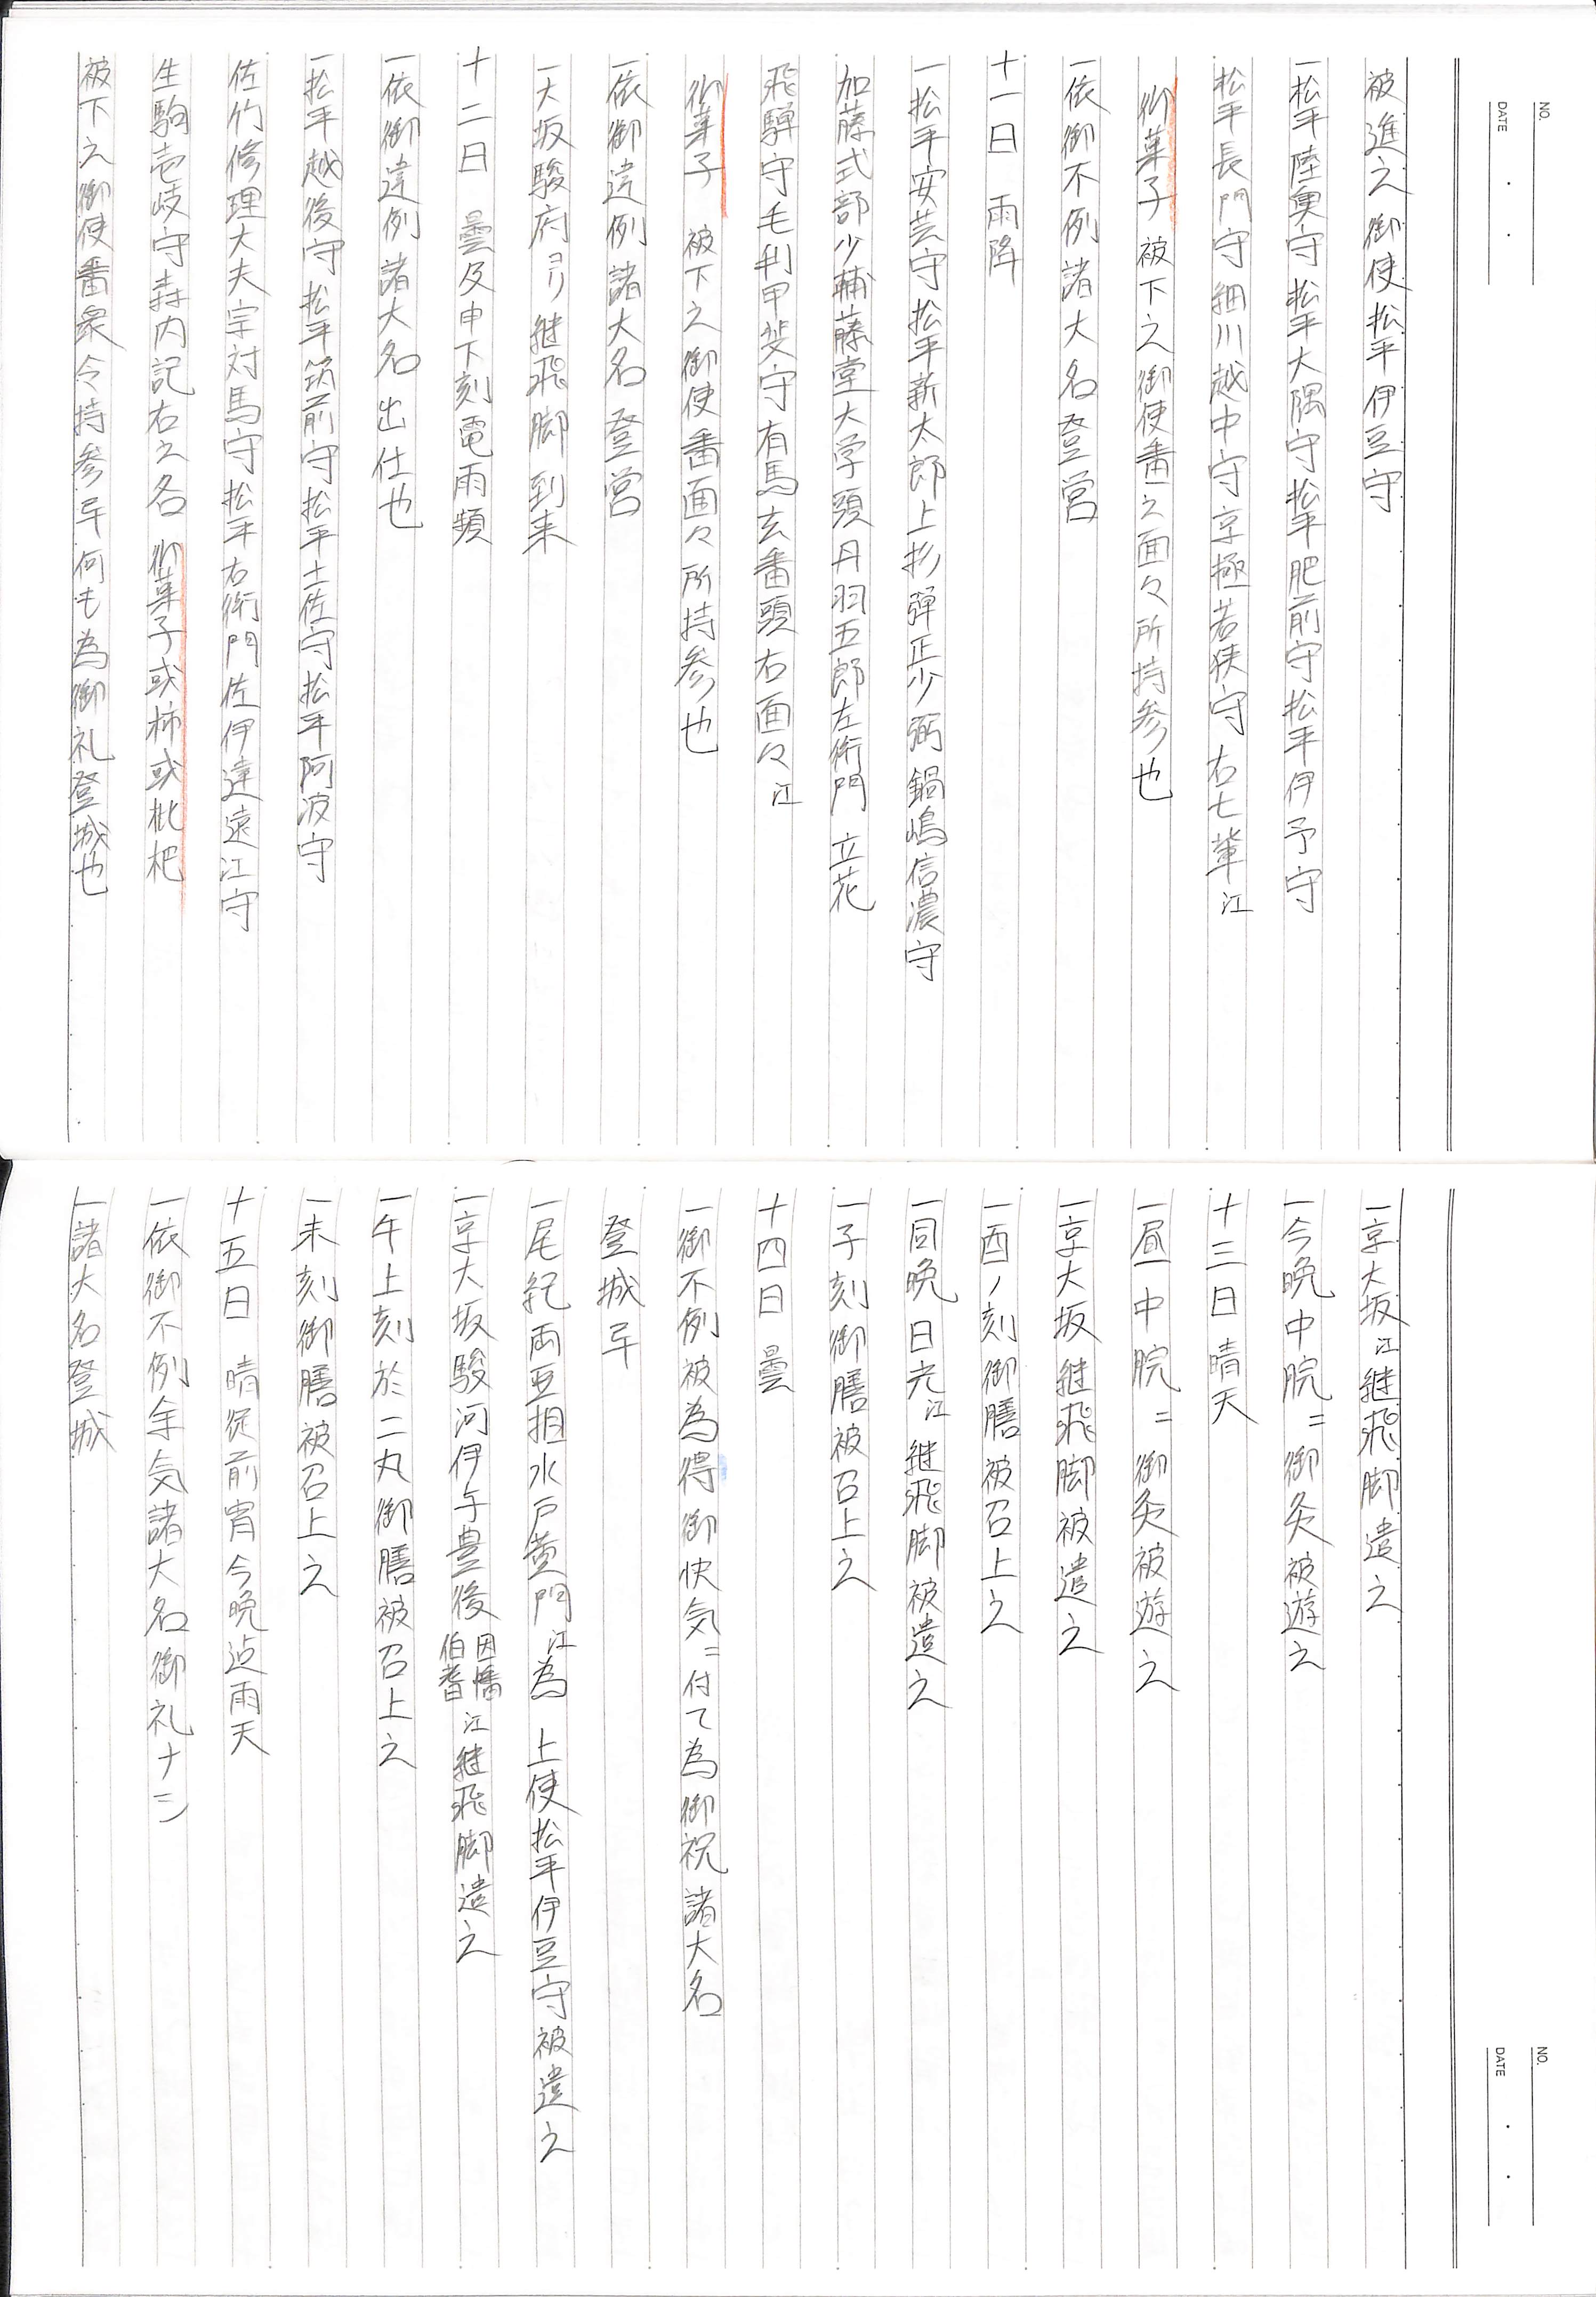 NO.
DATE
被進之御使松平伊豆守
一松平陸奥守松平大隅守松平肥前守松平伊予守
松平長門守細川越中守京極若狭守右七輩江
御菓子被下之御使番之面々所持参也
一依御不例諸大名登営
十一日 雨降
一松平安芸守松平新太郎上杉弾正少弼鍋嶋信濃守
加藤式部少輔藤堂大学頭丹羽五郎左衛門立花
飛騨守毛利甲斐守有馬玄番頭右面々江
御菓子 被下之御使番面々所持参也
一依御違例諸大名登営
一大坂駿府ヨリ継飛脚到来
十二日 曇及申下刻電雨頻
一依御違例諸大名出仕也
一松平越後守松平筑前守松平土佐守松平阿波守
佐竹修理大夫宗対馬守松平右衛門佐伊達遠江守
生駒壱岐守森内記右之名御菓子或柿或枇杷
被下之御使番衆令持参畢何も為御礼登城也
NO.
DATE
一京大坂江継飛脚遣之
一今晩中脘ニ御灸被遊之
十三日 晴天
一昼中脘ニ御灸被遊之
一京大坂継飛脚被遣之
一酉ノ刻御膳被召上之
一同晩日光江継飛脚被遣之
一子刻御膳被召上之
十四日 曇
一御不例被為得御快気ニ付て為御祝諸大名
登城畢
一尾紀両亜相水戸黄門江為 上使松平伊豆守被遣之
一京大坂駿河伊予豊後因幡伯耆江継飛脚遣之
一午上刻於二丸御膳被召上之
一未刻御膳被召上之
十五日 晴従前宵今晩迠雨天
一依御不例余気諸大名御礼ナシ
一諸大名登城